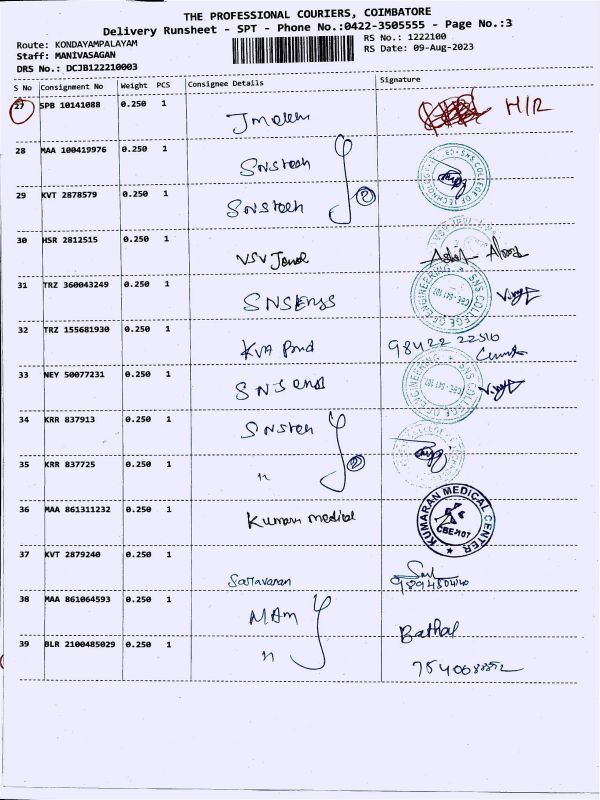 THE PROFESSIONAL COURIERS, COIMBATORE
Delivery Runsheet - SPT - Phone No.:0422-3505555 - Page No.:3
Route: KONDAYAMPALAYAM
Staff: MANIVASAGAN
DRS No.: DCJB122210003
RS No.: 1222100
RS Date: 09-Aug-2023
S No Consignment No Weight PCS Consignee Details Signature
27 SPB 10141088 0.250 1 H/R
28 MAA 100419976 0.250 1 SNS tech
29 KVT 2878579 0.250 1 SNS tech 2
30 HSR 2812515 0.250 1 VSV
31 TRZ 360043249 0.250 1 SNS Engg
SNS COLLEGE OF ENGINEERING
32 TRZ 155681930 0.250 1 KVA 98422 22510
33 NEY 50077231 0.250 1 SNS
SNS COLLEGE OF ENGINEERING
34 KRR 837913 0.250 1 SNS tech
35 KRR 837725 0.250 1 " 2
36 MAA 861311232 0.250 1 Kumaran medical
KUMARAN MEDICAL CENTER
CBE-107
37 KVT 2879240 0.250 1 Saravanan
38 MAA 861064593 0.250 1 MAM
39 BLR 2100485029 0.250 1 "